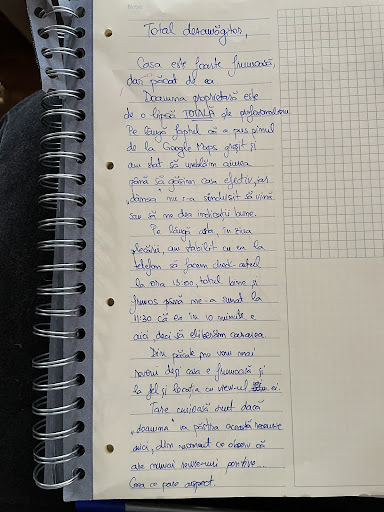 Total dezamăgitor,
Casa este foarte frumoasă,
dar păcat de ea
Doamna proprietară este
de o lipsă TOTALĂ de profesionalism
Pe lângă faptul că a pus pinul
de la Google Maps greșit și
am stat să umblăm aiurea
până să găsim casa efectiv, iar
„dânsa" nu s-a sinchisit să vină
sau să ne dea indicații bune.
Pe lângă asta, în ziua
plecării, am stabilit cu ea la
telefon să facem check-outul
la ora 13:00, totul bine și
frumos până ne-a sunat la
11:30 că ea în 10 minute e
aici deci să eliberăm camera.
Din păcate nu vom mai
reveni deși casa e frumoasă și
la fel și locația cu view-ul ei.
Tare curioasă sunt dacă
„doamna" va păstra această recenzie
aici, din moment ce observ că
are numai review-uri pozitive...
Ceea ce pare suspect.